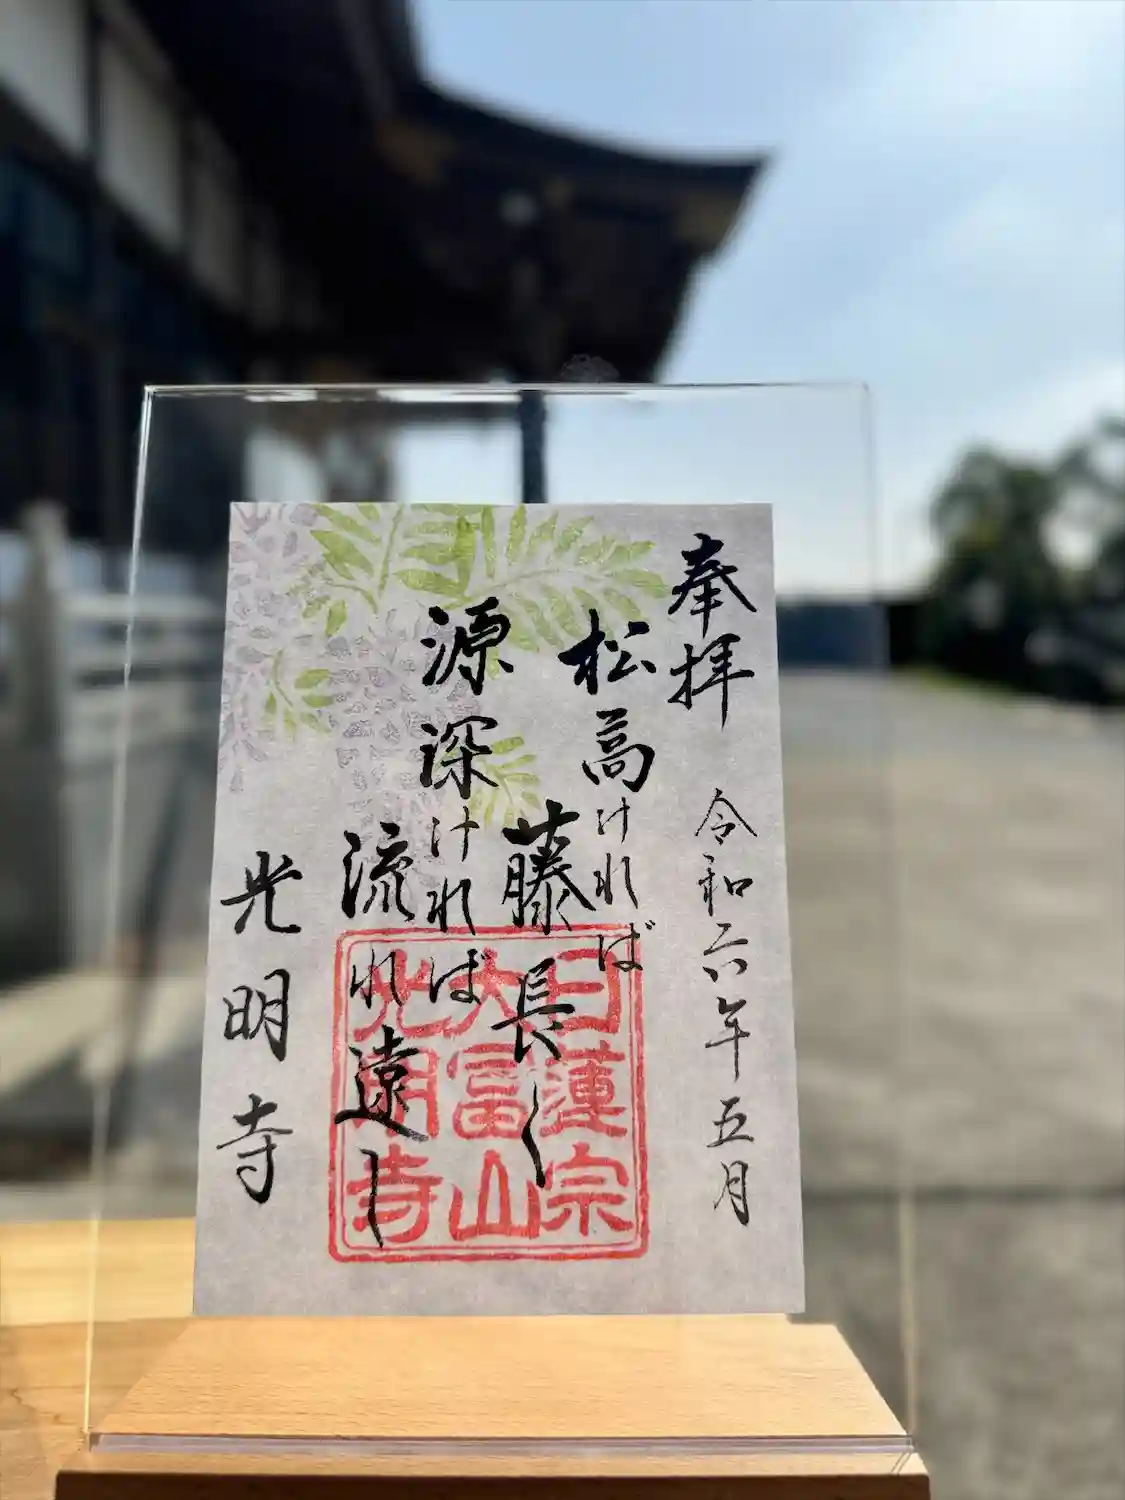 奉拝 令和六年五月
松高ければ
藤長く
源深ければ
流れ遠し
光明寺
日蓮宗
大富山
光明寺